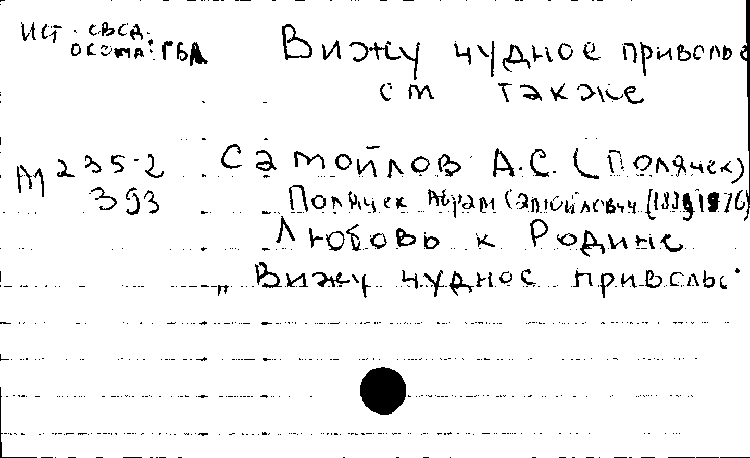 ист. свед.
Вижу чудное приволье
см также
А1 235-2
393
Самойлов А.С. (Полячек)
Полячек Абрам Самойлович
Любовь к Родине
„Вижу чудное приволье"